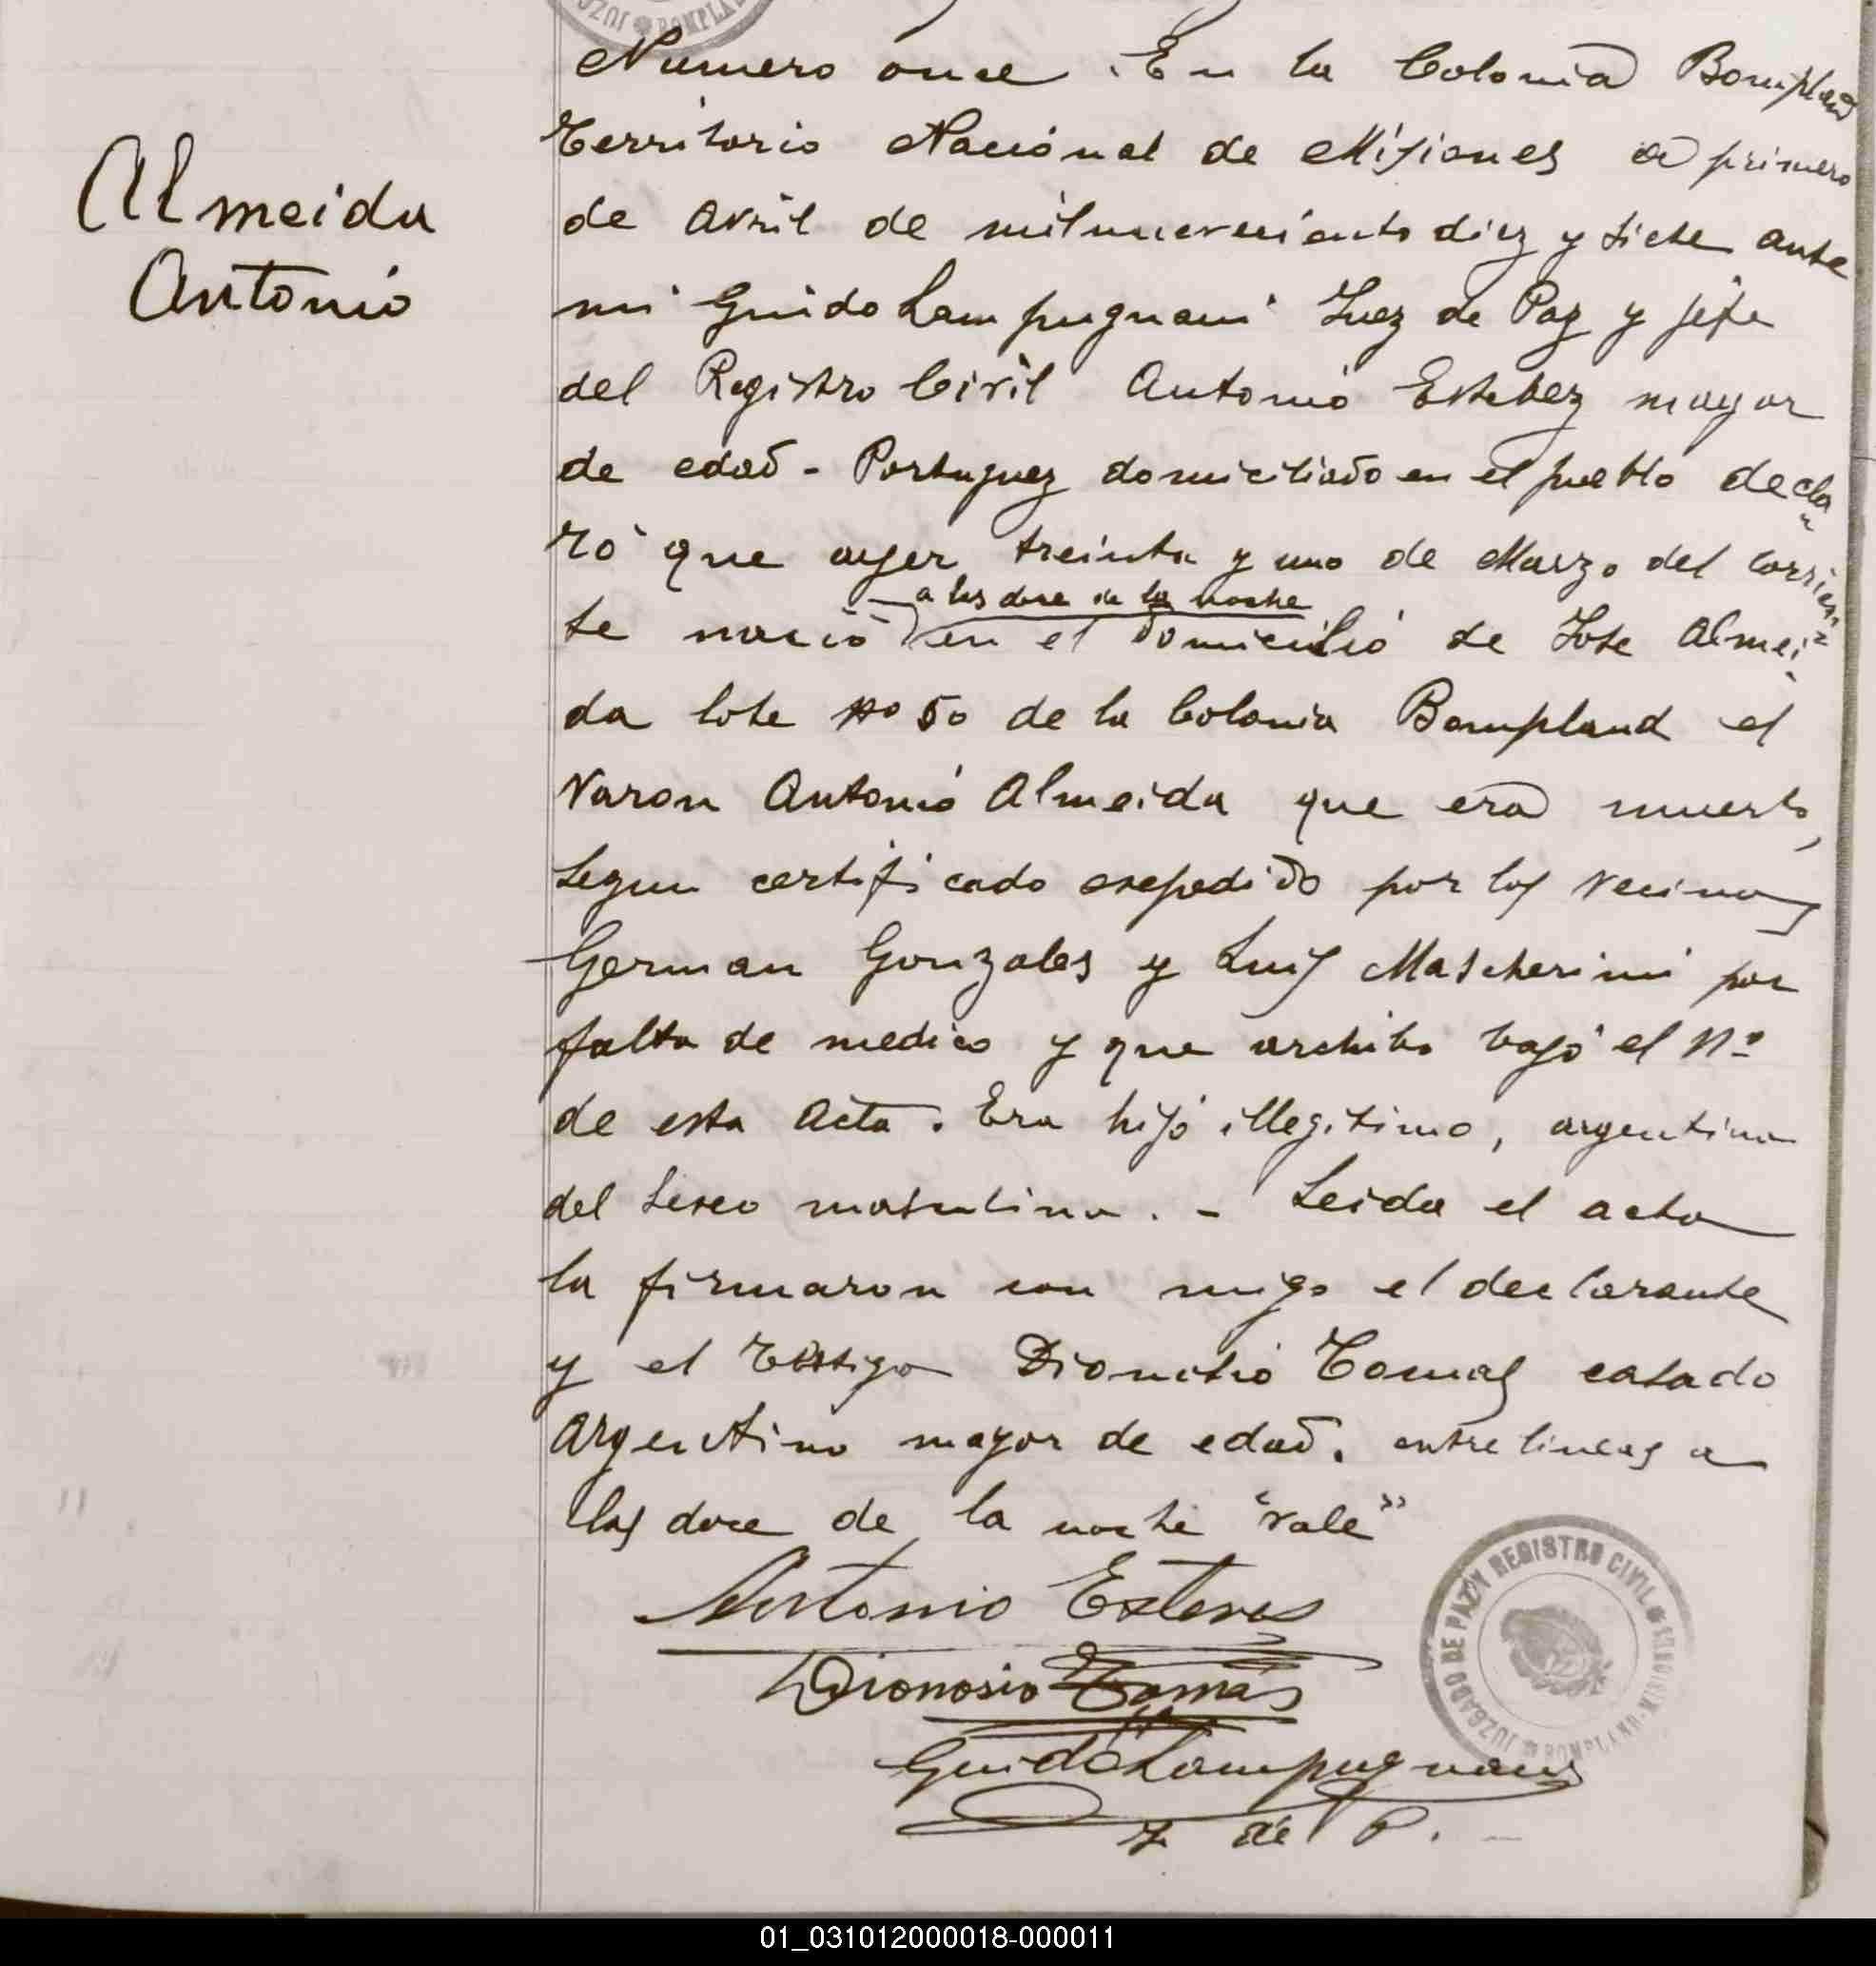 Almeida
Antonio
Numero once. En la Colonia Bompland
Territorio Nacional de Misiones a primero
de Avril de milnuevecientos diez y siete ante
mi Guido Lampugnani Juez de Paz y jefe
del Registro Civil Antonio Estebez mayor
de edad - Portuguez domiciliado en el pueblo decla
ró que ayer treinta y uno de Marzo del corrien
a las doce de la noche
te nació en el domicilio de Jose Almei
da lote No 50 de la Colonia Bompland el
varon Antonio Almeida que era muerto,
segun certificado esepedido por los vecinos
German Gonzales y Luis Mascherini por
falta de medico y que archibo bajo el Nº
de esta Acta. Era hijo illegitimo, argentino
del sexo masculino. - Leida el acta
la firmaron con migo el declarante
y el testigo Dionisio Tomas casado
Argentino mayor de edad. entre lineas a
las doce de la noche "vale"
Antonio Esteves
Dionosio Tomás
Guido Lampugnani
J. de P.
JUZGADO DE PAZ Y REGISTRO CIVIL
BOMPLAND-MISIONES
01_031012000018-000011